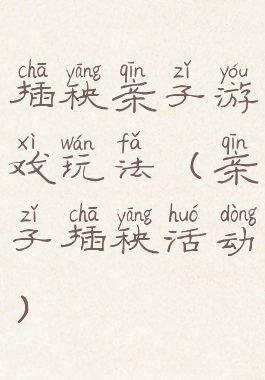 chā yāng qīn zǐ yóu
插秧亲子游
xì wán fǎ qīn
戏玩法（亲
zǐ chā yāng huó dòng
子插秧活动
）